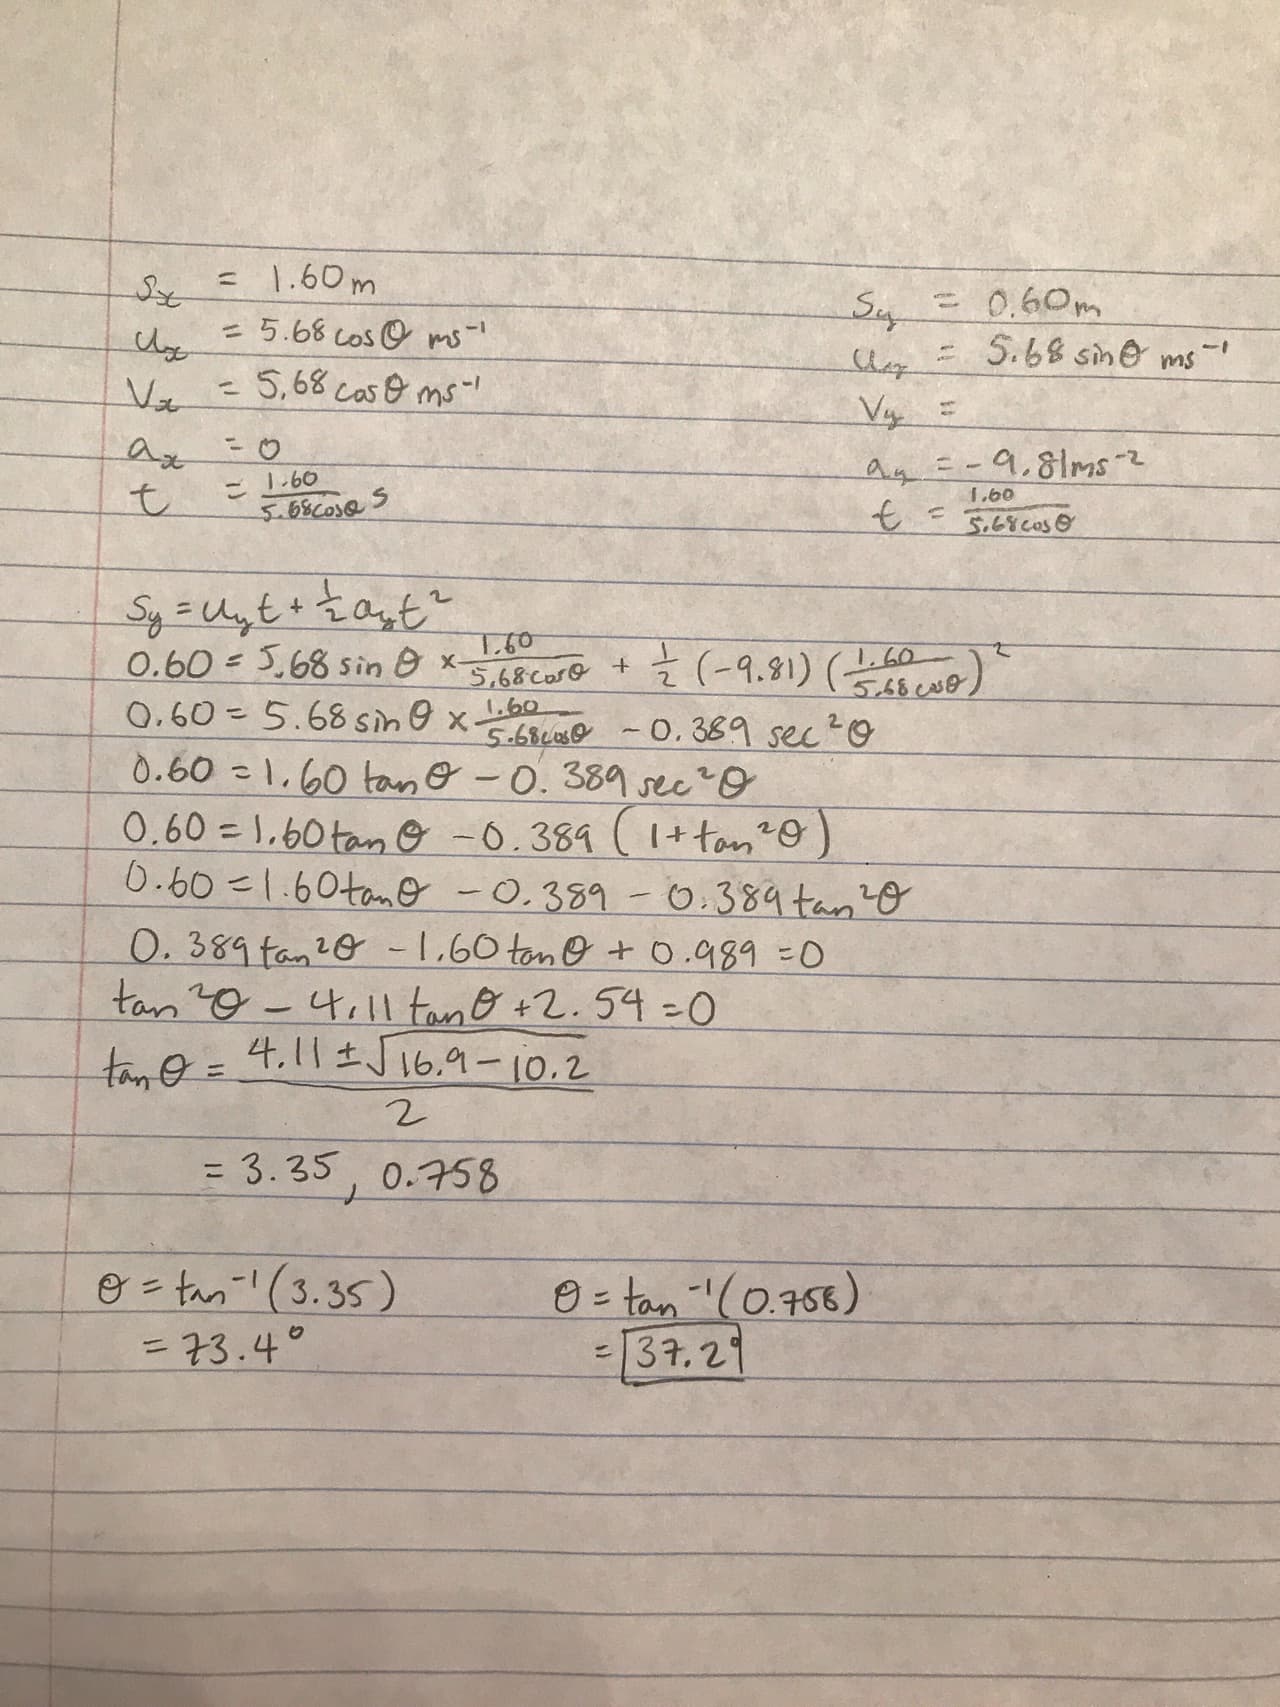 Sx = 1.60m
ux = 5.68 cosθ ms⁻¹
Vx = 5.68 cosθ ms⁻¹
ax = 0
t = 1.60/5.68cosθ s
Sy = 0.60m
uy = 5.68 sinθ ms⁻¹
Vy =
ay = -9.81ms⁻²
t = 1.60/5.68cosθ
Sy = uyt + ½ayt²
0.60 = 5.68 sin θ × 1.60/5.68cosθ + ½ (-9.81) (1.60/5.68cosθ)²
0.60 = 5.68 sinθ × 1.60/5.68cosθ - 0.389 sec²θ
0.60 = 1.60 tanθ - 0.389 sec²θ
0.60 = 1.60tanθ - 0.389 (1+tan²θ)
0.60 = 1.60tanθ - 0.389 - 0.389tan²θ
0.389tan²θ - 1.60tanθ + 0.989 = 0
tan²θ - 4.11tanθ + 2.54 = 0
tanθ = 4.11 ± √16.9 - 10.2 / 2
= 3.35, 0.758
θ = tan⁻¹(3.35)
= 73.4°
θ = tan⁻¹(0.758)
= 37.2°